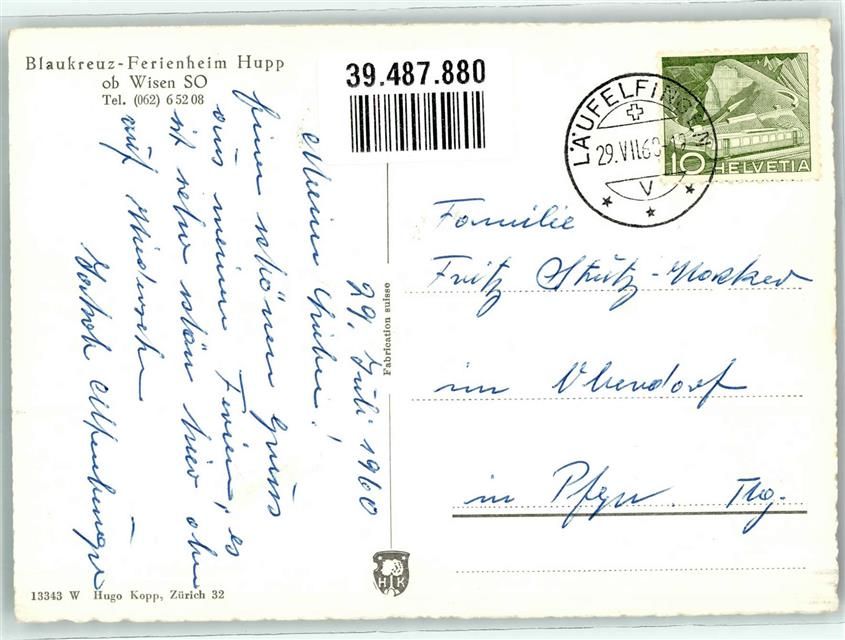 Blaukreuz-Ferienheim Hupp
ob Wisen SO
Tel. (062) 6 52 08
39.487.880
LÄUFELFINGEN
29.VII.60-12
V
10 HELVETIA
29. Juli 1960
Meine Lieben!
Einen schönen Gruss
aus meinen Ferien, es
ist sehr schön hier oben
auf Wiedersehn
Familie
Fritz Stutz-
im
in Pfyn. Thg.
Fabrication suisse
H K
13343 W Hugo Kopp, Zürich 32